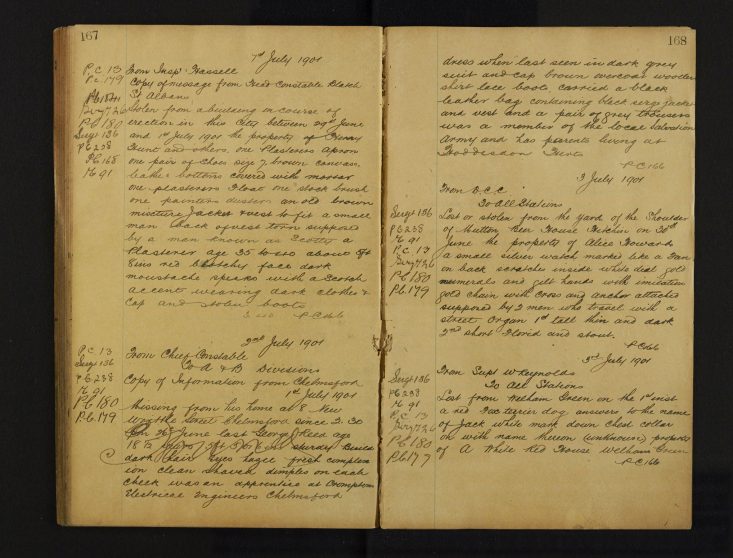 167
7th July 1901
P.C 13
P.C 179
From Insp Hassell
Copy of message from Head Constable
St Albans
Pc 180
Sergt 136
Pc 238
Pc 168
H 91
Stolen from a building in course of
erection in this City between 29th June
and 1st July 1901 the property of Henry
Hunt and others, one Plasterers Apron
one pair of shoes size 7 brown canvas,
leather bottoms covered with mortar
one plasterers Float one stock brush
one painters duster an old brown
mixture Jacket & vest to fit a small
man back of vest torn supposed
by a man known as Scotty a
Plasterer age 35 to 40 about 5ft
8ins red blotchy face dark
moustache speaks with a Scotch
accent wearing dark clothes &
Cap and stolen boots
P.C 166
2nd July 1901
P.C 13
Sergt 136
Pc 238
H 91
Pc 180
Pc 179
From Chief Constable
To A & B Divisions
Copy of Information from Chelmsford
1st July 1901
Missing from his home at 8 New
Writtle Street Chelmsford since 2.30
pm 26th June last George Rees age
18 sturdy build
dark hair eyes hazel fresh complex
ion clean shaven dimples on each
cheek was an apprentice at Crompton
Electrical Engineers Chelmsford
168
dress when last seen in dark grey
suit and cap brown overcoat woollen
shirt lace boots, carried a black
leather bag containing black serge jacket
and vest and a pair of grey trousers
was a member of the local Salvation
Army and has parents living at
Hoddesdon Herts
P.C 166
3 July 1901
From D.C.C
To All Stations
Sergt 136
Pc 238
H 91
P.C. 13
Pc 180
Pc 179
Lost or stolen from the yard of the Shoulder
of Mutton Beer House Hitchin on 30th
June the property of Alice Howard
a small silver watch marked like a Fan
on back scratches inside white dial gold
numerals and gilt hands with imitation
gold chain with cross and anchor attached
supposed by 2 men who travel with a
street Organ 1st tall thin and dark
2nd short Florid and stout.
Pc 166
3rd July 1901
From Supt W Reynolds
To All Stations
Sergt 136
Pc 238
H 91
P.C 13
Pc 180
Pc 177
Lost from Welham Green on the 1st inst
a red Fox terrier dog answers to the name
of Jack white mark down chest collar
on with name thereon (unknown) property
of A White Red House Welham Green
P.C 166